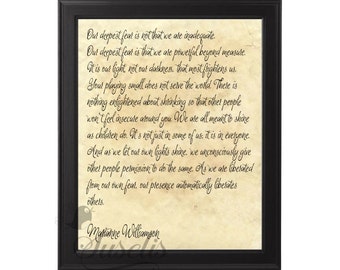 Our deepest fear is not that we are inadequate.
Our deepest fear is that we are powerful beyond measure.
It is our light, not our darkness, that most frightens us.
Your playing small does not serve the world. There is
nothing enlightened about shrinking so that other people
won't feel insecure around you. We are all meant to shine
as children do. It's not just in some of us; it is in everyone.
And as we let our own lights shine, we unconsciously give
other people permission to do the same. As we are liberated
from our own fear, our presence automatically liberates
others.
Marianne Williamson